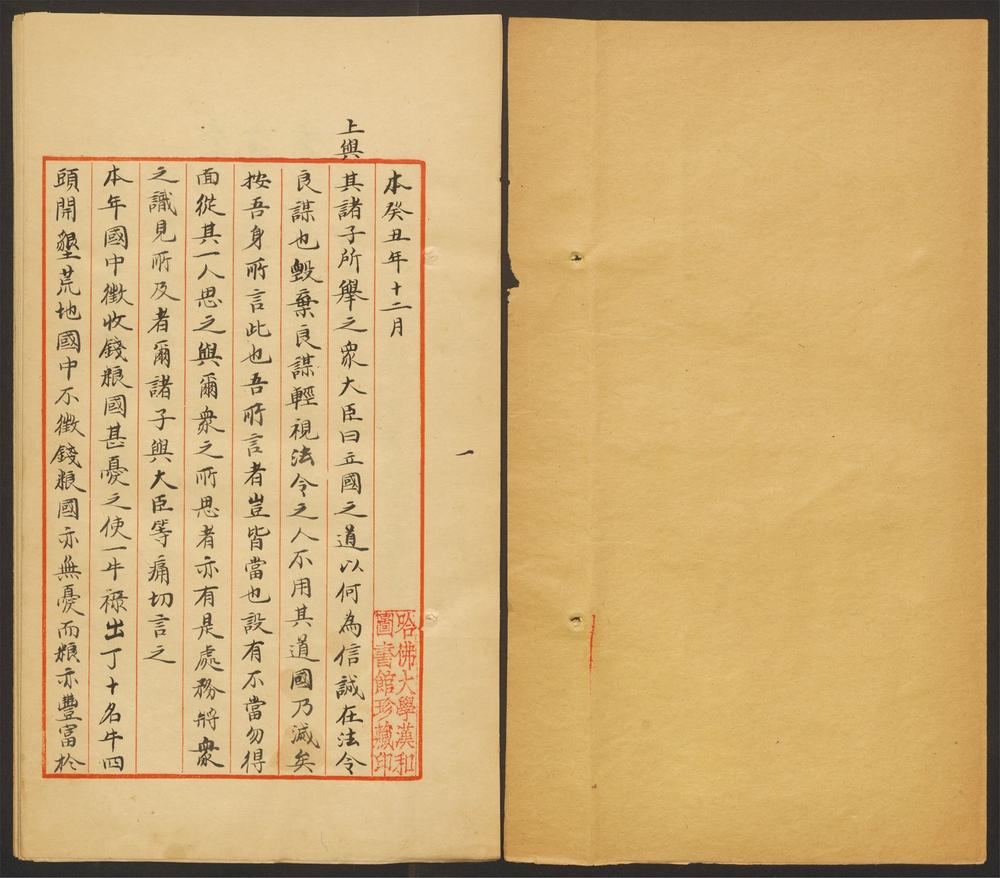 本癸丑年十二月
上與其諸子所舉之衆大臣曰立國之道以何為信誠在法令
良謀也毀棄良謀輕視法令之人不用其道國乃滅矣
按吾身所言此也吾所言者豈皆當也設有不當勿得
面從其一人思之與爾衆之所思者亦有是處務將衆
之識見所及者爾諸子與大臣等痛切言之
本年國中徵收錢粮國甚憂之使一牛彔出丁十名牛四
頭開墾荒地國中不徵錢粮國亦無憂而粮亦豐富於
一
哈佛大學漢和
圖書館珍藏印